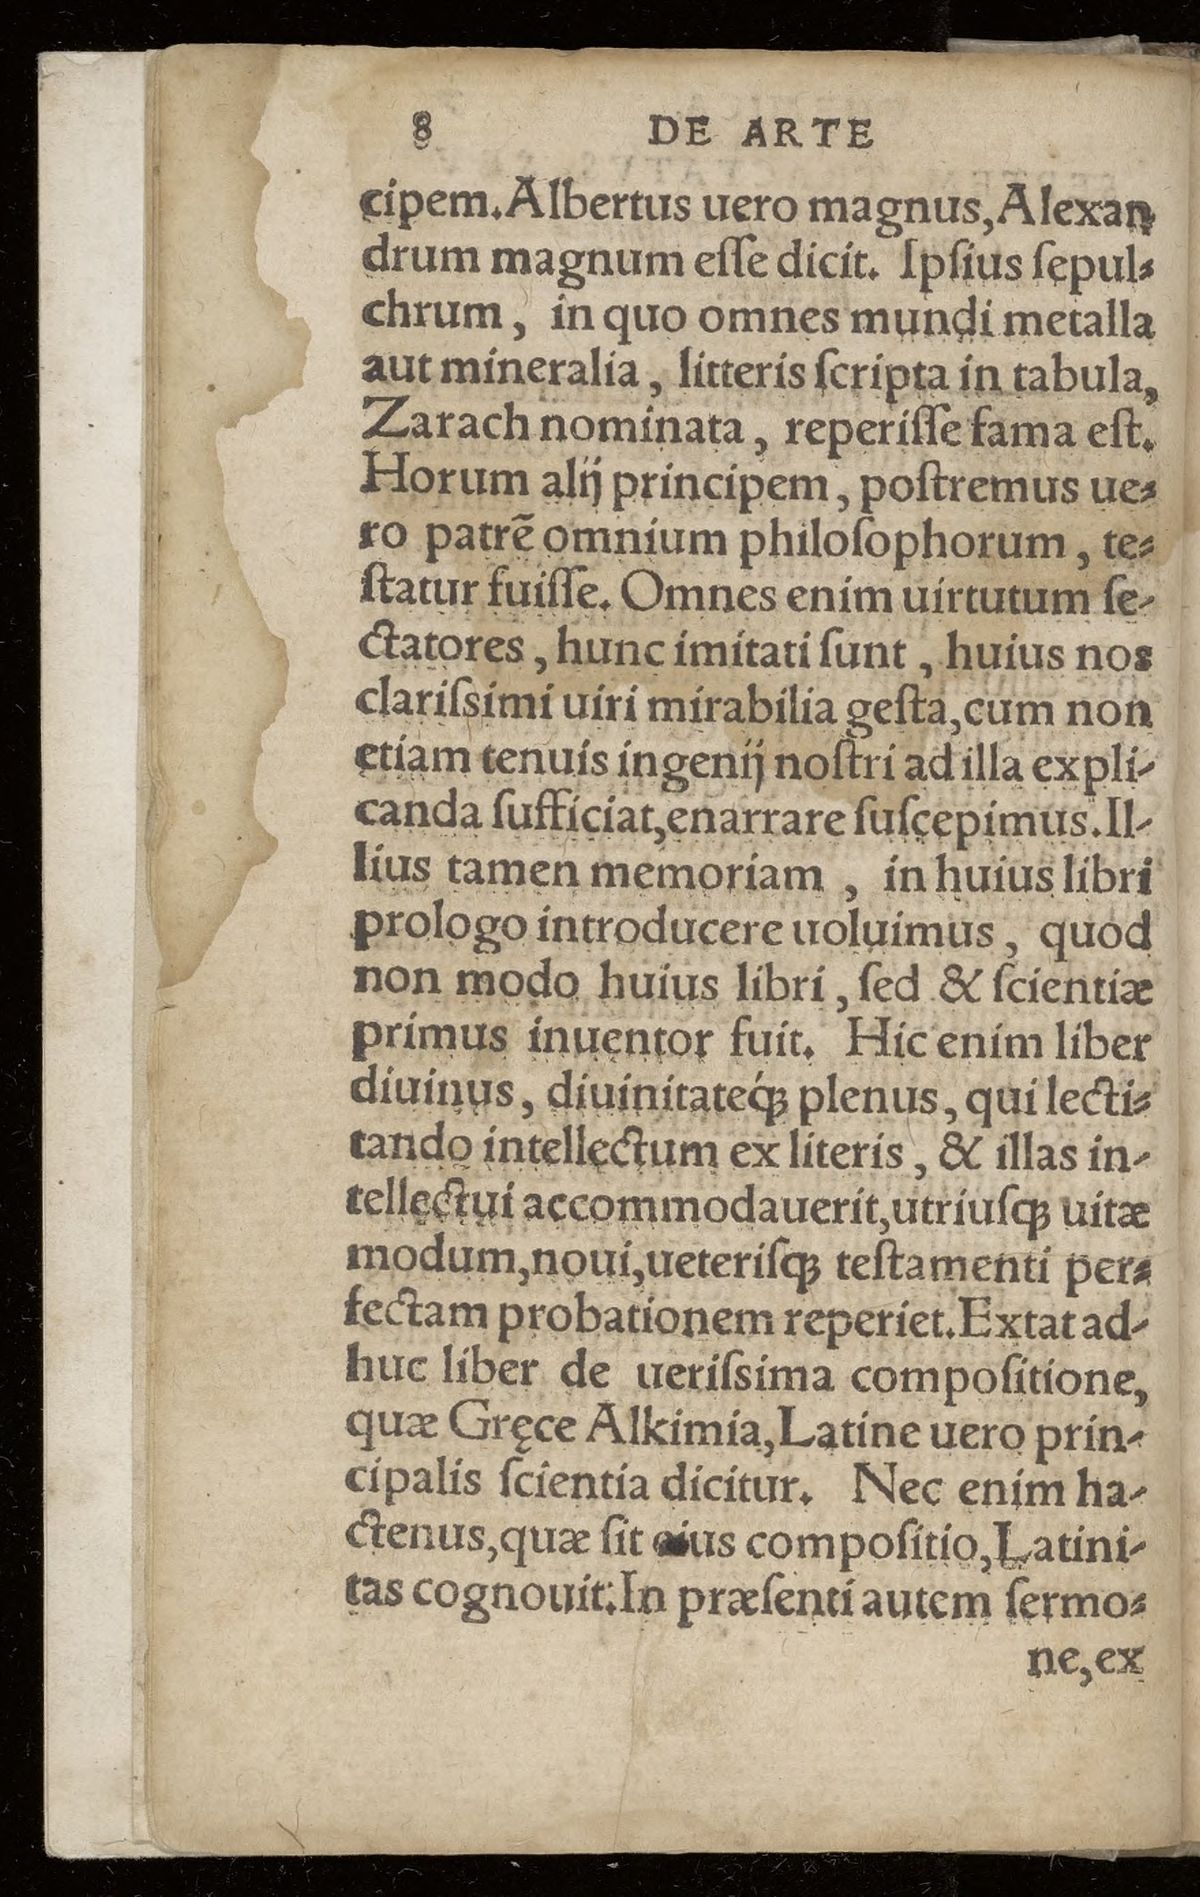 8 DE ARTE
cipem. Albertus uero magnus, Alexan
drum magnum eſſe dicit. Ipſius ſepul-
chrum, in quo omnes mundi metalla
aut mineralia, litteris ſcripta in tabula,
Zarach nominata, reperiſſe fama eſt.
Horum alij principem, poſtremus ue-
ro patrē omnium philoſophorum, te-
ſtatur fuiſſe. Omnes enim uirtutum ſe-
ctatores, hunc imitati ſunt, huius nos
clariſsimi uiri mirabilia geſta, cum non
etiam tenuis ingenij noſtri ad illa expli-
canda ſufficiat, enarrare ſuſcepimus. Il-
lius tamen memoriam, in huius libri
prologo introducere uoluimus, quod
non modo huius libri, ſed & ſcientiæ
primus inuentor fuit. Hic enim liber
diuinus, diuinitateq́ꝫ plenus, qui lecti-
tando intellectum ex literis, & illas in-
tellectui accommodauerit, utriuſqꝫ uitæ
modum, noui, ueteriſqꝫ teſtamenti per-
fectam probationem reperiet. Extat ad-
huc liber de ueriſsima compoſitione,
quæ Gręce Alkimia, Latine uero prin-
cipalis ſcientia dicitur. Nec enim ha-
ctenus, quæ ſit eius compoſitio, Latini-
tas cognouit: In præſenti autem ſermo-
ne, ex